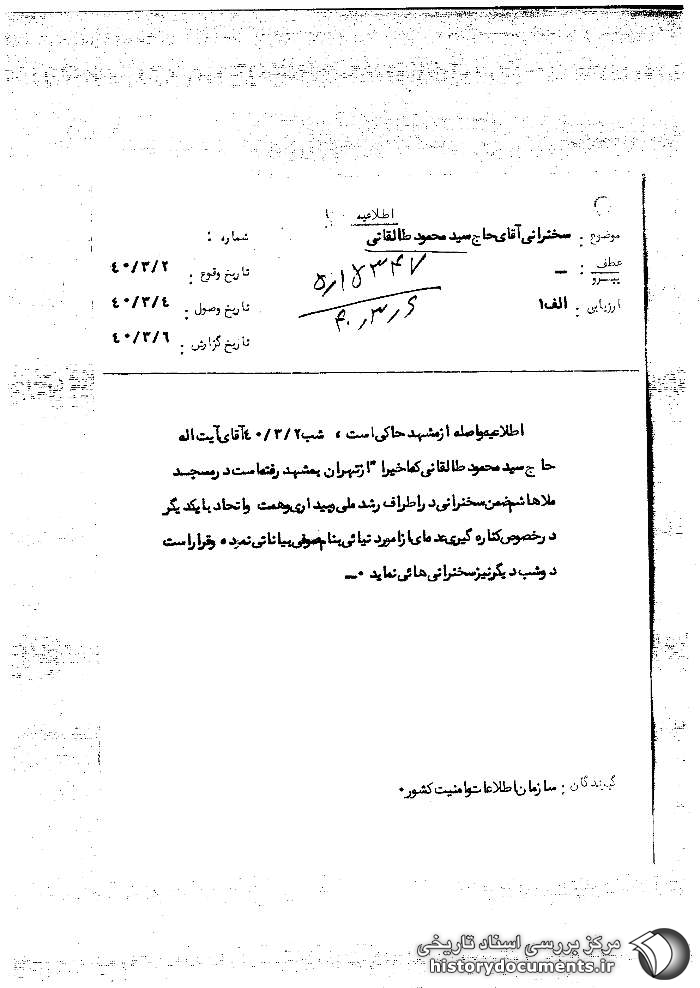 اطلاعیه
موضوع : سخنرانی آقای حاج سید محمود طالقانی
شماره :
عطف :
پیرو
ـ
تاریخ وقوع : ٤٠/٣/٢
ارزیابی : الف١
تاریخ وصول : ٤٠/٣/٤
تاریخ گزارش : ٤٠/٣/٦
۴۰٫۳٫۶
اطلاعیه واصله از مشهد حاکی است ، شب ٤٠/٣/٢ آقای آیت اله
حاج سید محمود طالقانی که اخیرا" از تهران بمشهد رفته است در مسجد
ملاهاشم ضمن سخنرانی در اطراف رشد ملی و بیداری و همت و اتحاد با یکدیگر
در خصوص کناره گیری عده ای از امور دنیائی بنام صوفی بیاناتی نموده و قرار است
دو شب دیگر نیز سخنرانی هائی نماید ٠ــ
گیرندگان : سازمان اطلاعات و امنیت کشور٠
مرکز بررسی اسناد تاریخی
historydocuments.ir